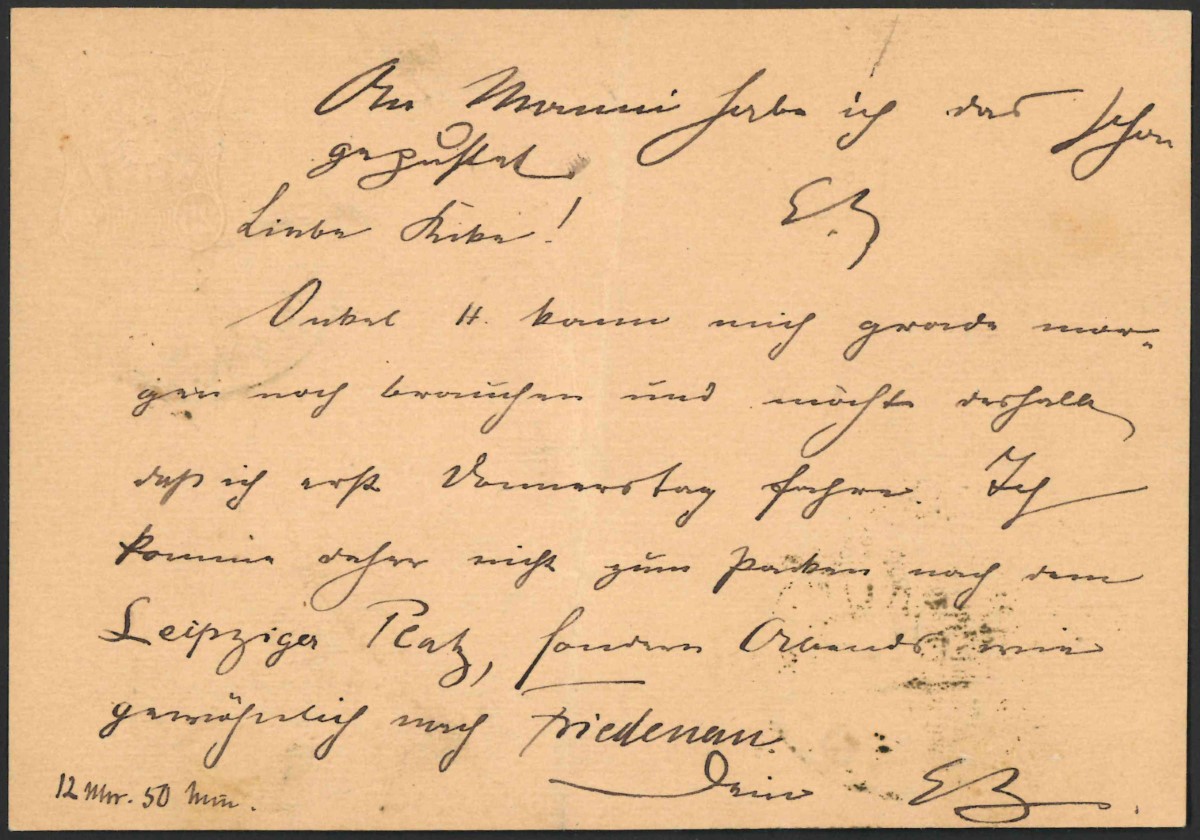 An Manni habe ich das schon
gepustet.
EB
Liebe Kike!
Onkel H. kann mich grade mor-
gen noch brauchen und möchte deshalb
daß ich erst Donnerstag fahre. Ich
komme daher nicht zum Packen nach dem
Leipziger Platz, sondern Abends wie
gewöhnlich nach Friedenau.
Dein EB
12 Uhr. 50 Min.